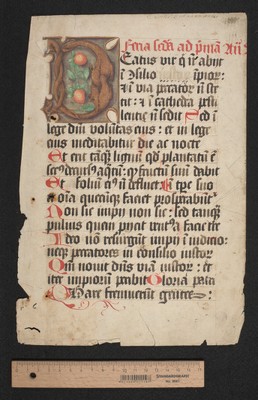 Feria scd'a ad p'mā Añ
Beatus vir q' nō abijt
ī ꝯsilio impior:
In via pctatoꝝ nō ste
tit: ⁊ ī cathedra pesti
lentie nō sedit Sed ī
lege dñi volūtas eius: et in lege
eius meditabitur die ac nocte
Et erit tāq̄ lignū qd' plantatū ē
sec' decursꝰ aquaꝝ: q' fructū suū dabit
Et foliū eiꝰ nō defluet: Et
oīa quecūq̄ faciet prosperabūt'
Non sic impij non sic: sed tanq̄
puluis quem proicit ventꝰ a facie t're
Ideo nō resurgūt impij ī iudicio:
neq̄ peccatores in consilio iustoꝝ
Qm̄ nouit dñs viā iustoꝝ: et
iter impioꝝ peribit Gloria patri
Quare fremuerūt gentes: